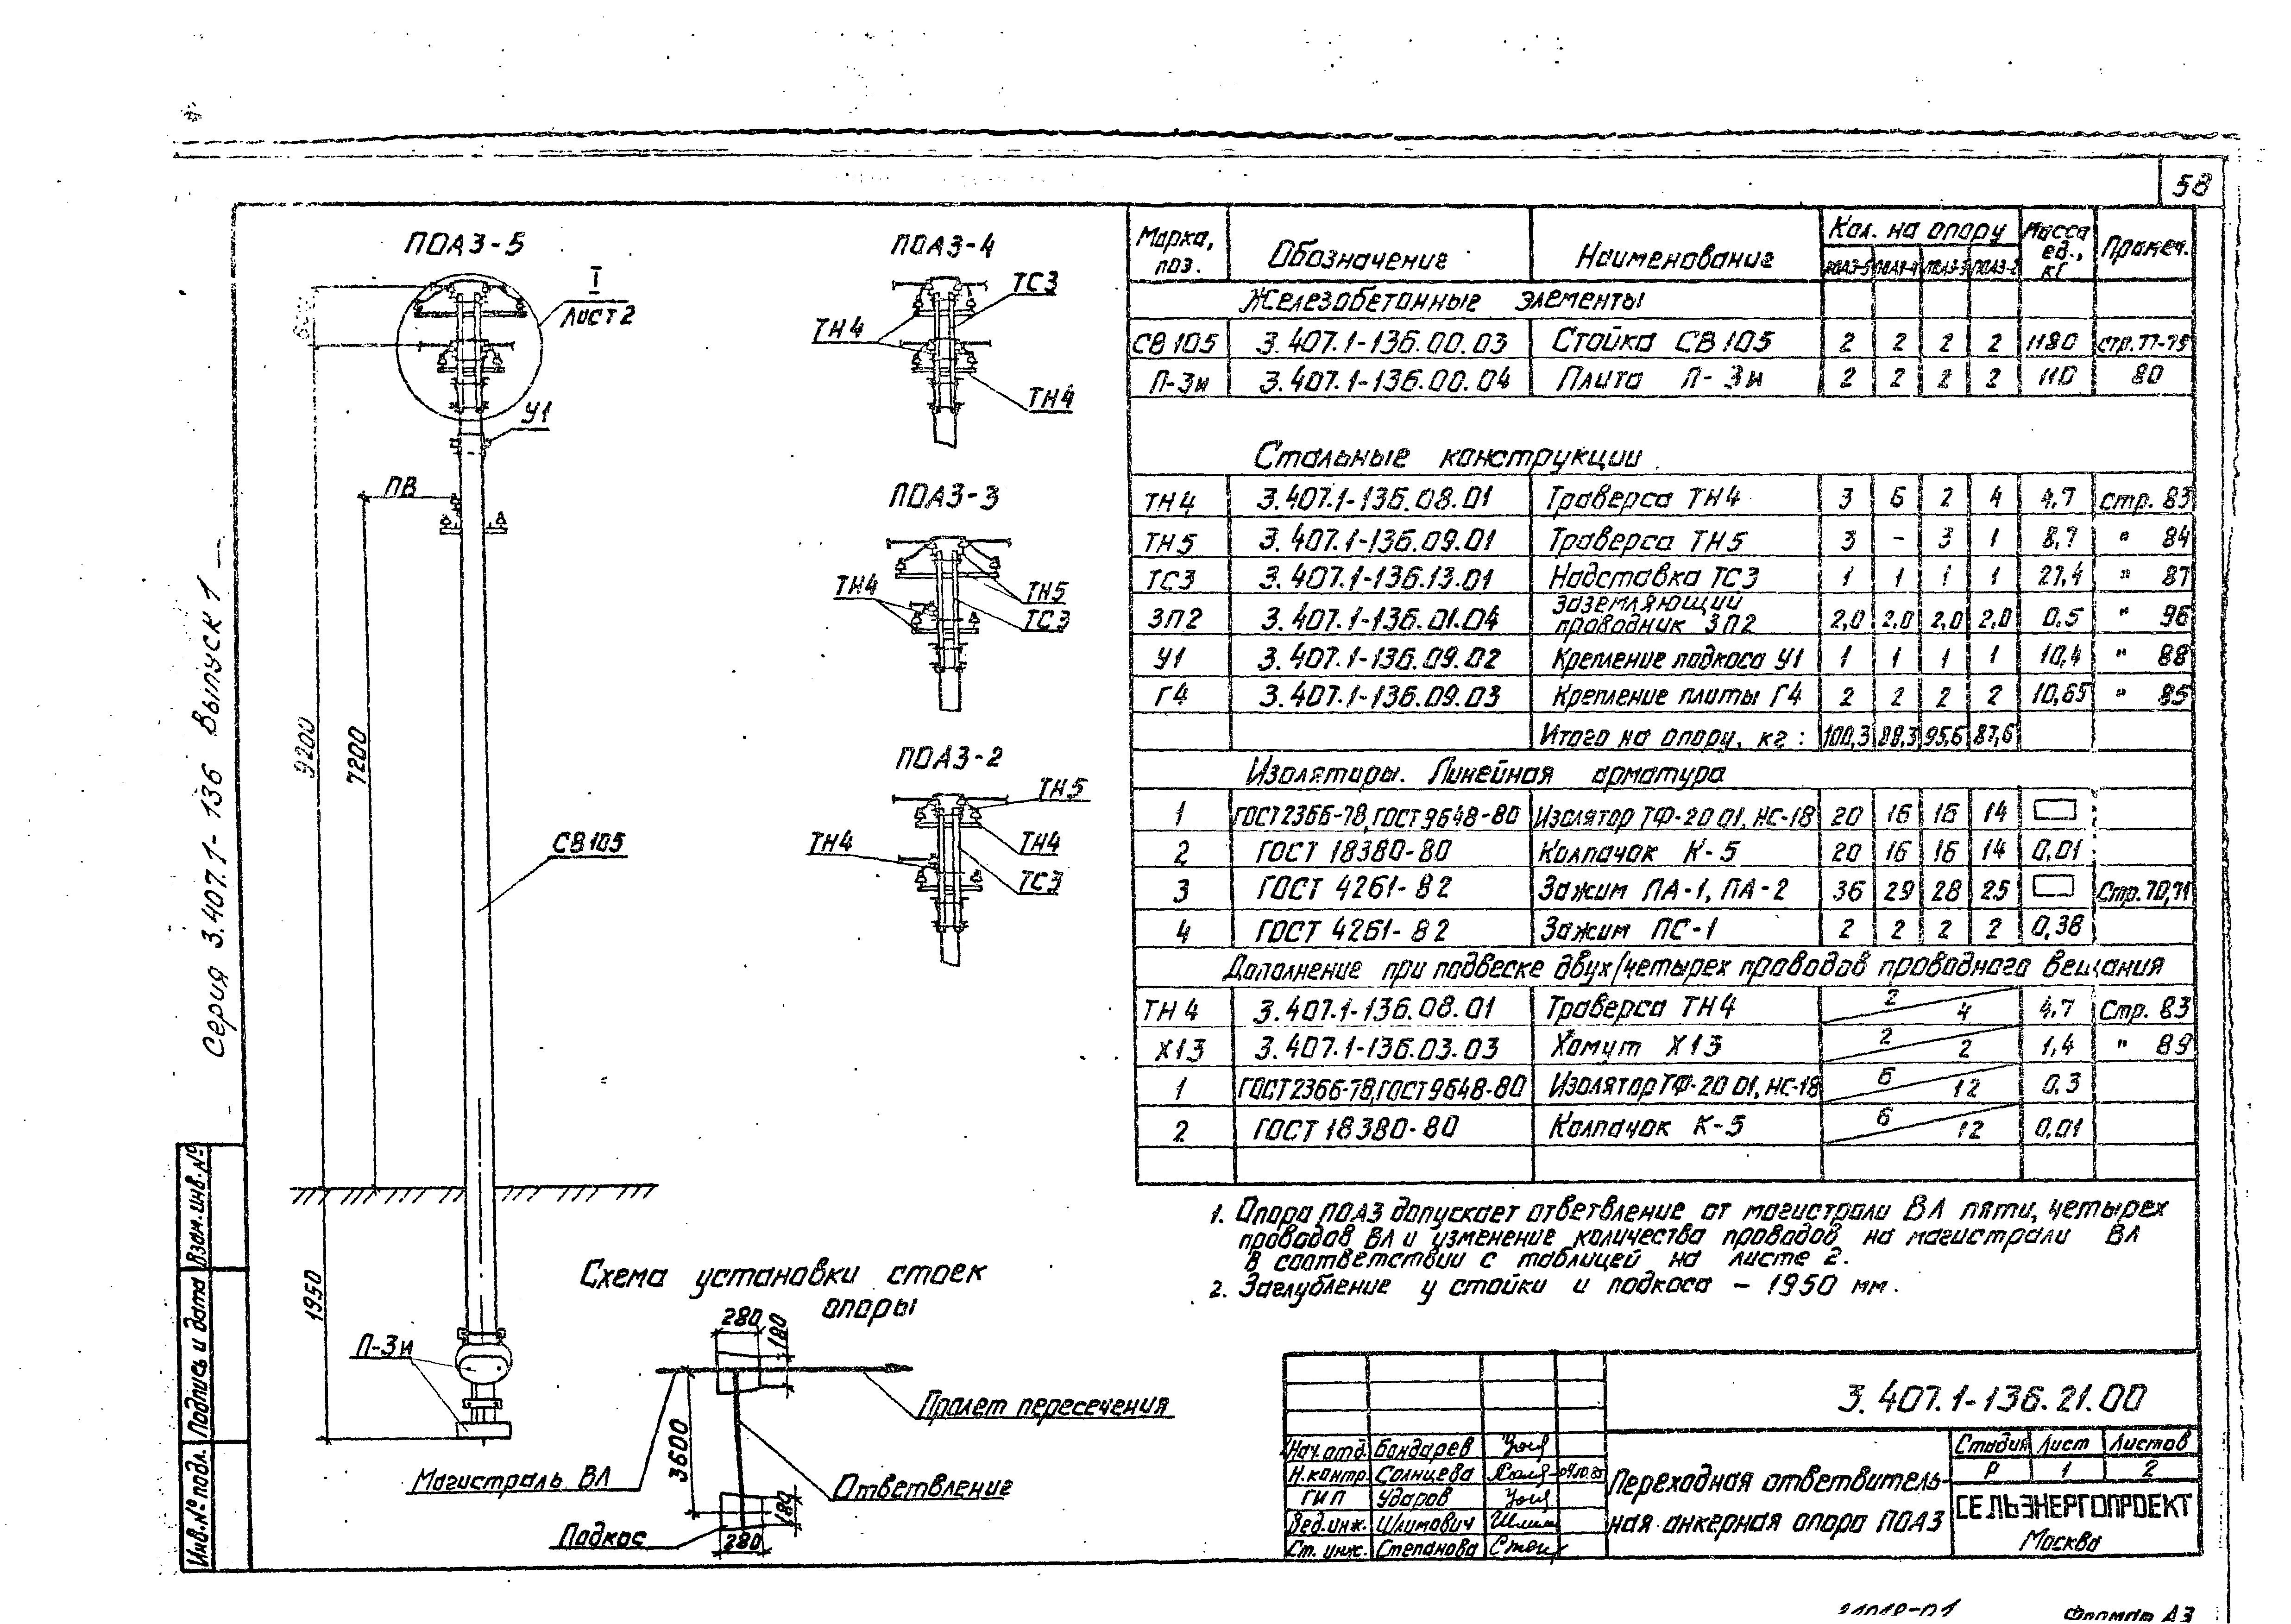 58
Серия 3.407.1-136 Выпуск 1
ПОАЗ-5
I
Лист 2
У1
ПВ
9200
7200
СВ105
1950
П-3и
ПОАЗ-4
ТС3
ТН4
ТН4
ПОАЗ-3
ТН4
ТН5
ТС3
ПОАЗ-2
ТН5
ТН4
ТН4
ТС3
Схема установки стоек
опоры
280
180
Пролет пересечения
3600
Магистраль ВЛ
Ответвление
Подкос
180
280
Марка, поз. Обозначение Наименование Кол. на опору Масса ед., кг Примеч.
ПОАЗ-5 ПОАЗ-4 ПОАЗ-3 ПОАЗ-2
Железобетонные элементы
СВ105 3.407.1-136.00.03 Стойка СВ105 2 2 2 2 1180
П-3и 3.407.1-136.00.04 Плита П-3и 2 2 2 2 110 80
Стальные конструкции
ТН4 3.407.1-136.08.01 Траверса ТН4 3 6 2 4 4,7 Стр. 83
ТН5 3.407.1-136.09.01 Траверса ТН5 3 - 3 1 8,7 " 84
ТС3 3.407.1-136.13.01 Надставка ТС3 1 1 1 1 27,4 " 87
ЗП2 3.407.1-136.01.04 Заземляющий проводник ЗП2 2,0 2,0 2,0 2,0 0,5 " 96
У1 3.407.1-136.09.02 Крепление подкоса У1 1 1 1 1 10,4 " 88
Г4 3.407.1-136.09.03 Крепление плиты Г4 2 2 2 2 10,65 " 85
Итого на опору, кг: 100,3 88,3 95,6 87,6
Изоляторы. Линейная арматура
1 ГОСТ2366-78, ГОСТ9648-80 Изолятор ТФ-20 01, НС-18 20 16 16 14
2 ГОСТ 18380-80 Колпачок К-5 20 16 16 14 0,01
3 ГОСТ 4261-82 Зажим ПА-1, ПА-2 36 29 28 25 Стр. 70,71
4 ГОСТ 4261-82 Зажим ПС-1 2 2 2 2 0,38
Дополнение при подвеске двух/четырех проводов проводного вещания
ТН4 3.407.1-136.08.01 Траверса ТН4 2 4 4,7 Стр. 83
Х13 3.407.1-136.03.03 Хомут Х13 2 2 1,4 " 89
1 ГОСТ2366-78, ГОСТ9648-80 Изолятор ТФ-20 01, НС-18 6 12 0,3
2 ГОСТ 18380-80 Колпачок К-5 6 12 0,01
1. Опора ПОАЗ допускает ответвление от магистрали ВЛ пяти, четырех
проводов ВЛ и изменение количества проводов на магистрали ВЛ
в соответствии с таблицей на листе 2.
2. Заглубление у стойки и подкоса - 1950 мм.
3.407.1-136.21.00
Нач.отд. Бондарев
Н.контр. Солнцева
ГИП Ударов
Вед.инж. Шлимович
Ст. инж. Степанова
Переходная ответвитель-
ная анкерная опора ПОАЗ
Стадия Лист Листов
Р 1 2
СЕЛЬЭНЕРГОПРОЕКТ
Москва
Инв.№ подл. Подпись и дата Взам.инв.№
Формат А3